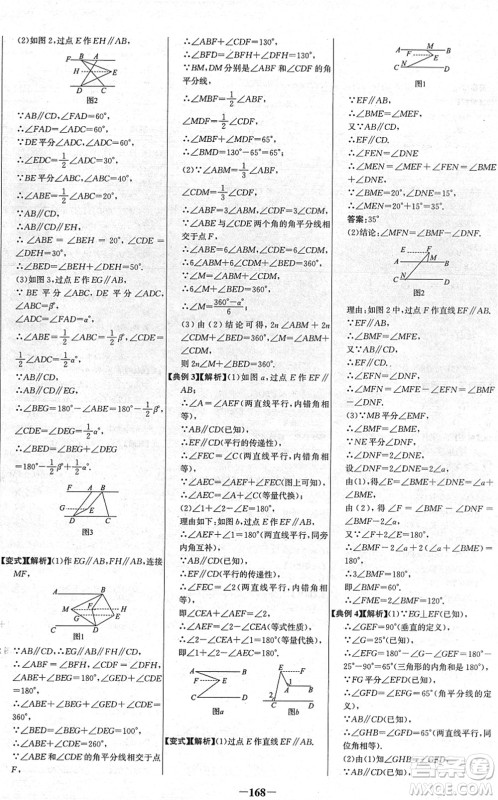 (2)如图2,过点E作EH∥AB,
图2
∵AB∥CD,∠FAD=60°,
∴∠FAD=∠ADC=60°,
∵DE平分∠ADC,∠ADC=60°,
∴∠EDC=1/2∠ADC=30°,
∵BE平分∠ABC,∠ABC=40°,
∴∠ABE=1/2∠ABC=20°,
∵AB∥CD,
∴AB∥CD∥EH,
∴∠ABE=∠BEH=20°,∠CDE=
∠DEH=30°,
∴∠BED=∠BEH+∠DEH=50°.
(3)如图3,过点E作EG∥AB,
∵BE平分∠ABC,DE平分
∠ADC,∠ABC=β°,
∠ADC=∠FAD=α°,
∴∠ABE=1/2∠ABC=1/2β°,∠CDE
=1/2∠ADC=1/2α°,
∵AB∥CD,
∴AB∥CD∥EG,
∴∠BEG=180°-∠ABE=180°-1/2β°,
∠CDE=∠DEG=1/2α°,
∴∠BED=∠BEG+∠DEG
=180°-1/2β°+1/2α°.
图3
【变式】【解析】(1)作EG∥AB,FH∥AB,连接
MF,
图1
∵AB∥CD,∴EG∥AB∥FH∥CD,
∴∠ABF=∠BFH,∠CDF=∠DFH,
∠ABE+∠BEG=180°,∠GED+
∠CDE=180°,
∴∠ABE+∠BEG+∠GED+
∠CDE=360°,
∵∠BED=∠BEG+∠DEG=100°,
∴∠ABE+∠CDE=260°,
∵∠ABE和∠CDE的角平分线相交于
点F,
∴∠ABF+∠CDF=130°,
∴∠BFD=∠BFH+∠DFH=130°,
∵BM,DM分别是∠ABF和∠CDF的角
平分线,
∴∠MBF=1/2∠ABF,
∠MDF=1/2∠CDF,
∴∠MBF+∠MDF=65°,
∴∠BMD=130°-65°=65°;
(2)∵∠ABM=1/3∠ABF,
∠CDM=1/3∠CDF,
∴∠ABF=3∠ABM,∠CDF=3∠CDM,
∵∠ABE与∠CDE两个角的角平分线相
交于点F,
∴∠ABE=6∠ABM,∠CDE=6∠CDM,
∴6∠ABM+6∠CDM+∠BED=360°,
∵∠M=∠ABM+∠CDM,
∴6∠M+∠BED=360°,
∴∠M=(360°-α°)/6;
(3)由(2)结论可得,2n∠ABM+2n
∠CDM+∠E=360°,∠M=∠ABM+∠CDM,
则2n∠M+∠BED=360°.
【典例3】【解析】(1)如图a,过点E作EF∥
AB,
∴∠A=∠AEF(两直线平行,内错角相
等),
∵AB∥CD(已知),
∴EF∥CD(平行的传递性),
∴∠FEC=∠C(两直线平行,内错角相
等),
∵∠AEC=∠AEF+∠FEC,
∴∠AEC=∠A+∠C(等量代换);
(2)∠1+∠2-∠E=180°,
理由如下:如图b,过点E作EF∥AB,
∴∠AEF+∠1=180°(两直线平行,同旁
内角互补),
∵AB∥CD(已知),
∴EF∥CD(平行的传递性),
∴∠FEC=∠2(两直线平行,内错角相等),
即∠CEA+∠AEF=∠2,
∴∠AEF=∠2-∠CEA(等式性质),
∴∠2-∠CEA+∠1=180°(等量代换),
即∠1+∠2-∠AEC=180°.
图a
图b
【变式】【解析】(1)过点E作直线EF∥AB.
图1
∵EF∥AB,
∴∠ABME=∠MEF,
又∵AB∥CD,
∴EF∥CD,
∴∠FEN=∠DNE,
∴∠MEN=∠MEF+∠FEN,
∴∠MEN=∠BME+∠DNE,
∵∠BME=20°,∠DNE=15°,
∴∠MEN=20°+15°=35°.
答案:35°
(2)结论:∠MFN=∠BMF-∠DNF.
图2
理由:如图2中,过点F作直线EF∥AB.
∵EF∥AB,
∴∠BMF=∠MFE,
又∵AB∥CD,
∴EF∥CD,
∴∠EFN=∠DNF,
∴∠MFN=∠MFE-∠EFN,
∴∠MFN=∠BMF-∠DNF;
(3)∵MB平分∠EMF,
∴∠BME=∠BMF,
∵NE平分∠DNF,
∴∠DNE=∠ENF,
设∠DNE=∠DNF=2∠α,
由(1)得:∠E=∠BMF+∠α,
由(2)得:∠F=∠BMF-2∠α,
又∵2∠E+∠F=180°,
∴∠BMF=60°,
∴∠BMF+∠EMF=180°,
即∠EMF=120°.
【典例4】【解析】(1)∵EG⊥EF(已知),
∴∠GEF=90°(垂直的意义),
∵∠GFE+∠GEF+∠EGF=180°,
∴∠GFE=180°-∠GEF-∠EGF=180°
-25°-90°=65°(三角形的内角和),
∵FG平分∠EFD(已知),
∴∠GFD=∠GFE=65°(角平分线的定
义),
∵AB∥CD(已知),
∴∠GHB=∠GFD=65°(两直线平行,同
位角相等);
(2)由(1)知∠GHB=∠GFD(已知),
∵∠GFD=∠GFE(已知),
-168-